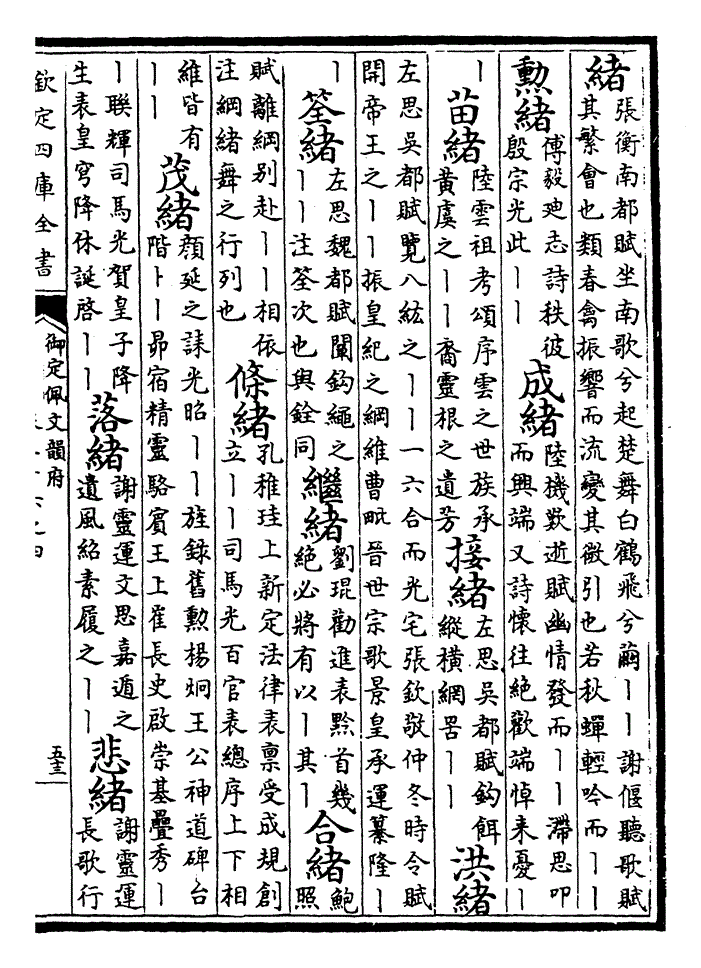 緒張衡南都賦坐南歌兮起楚舞白鶴飛兮繭丨丨謝偃聽歌賦
其繁會也類春禽振響而流變其微引也若秋蟬輕吟而丨丨
勲緒傅毅廸志詩秩彼
殷宗光此丨丨
成緒陸機歎逝賦幽情發而丨丨滯思叩
而興端又詩懷往絕歡端悼来憂丨
丨
苗緒陸雲祖考頌序雲之世族承
黃虞之丨丨裔靈根之遺芳
接緒左思吳都賦鈎餌
縱横網罟丨丨
洪緒
左思吳都賦覽八紘之丨丨一六合而光宅張欽敬仲冬時令賦
開帝王之丨丨振皇紀之綱維曹毗晉世宗歌景皇承運纂隆丨
丨
筌緒左思魏都賦闡鈎繩之
丨丨注筌次也與銓同
繼緒劉琨勸進表黔首幾
絕必將有以丨其丨
合緒鮑
照
賦離綱別赴丨丨相依
注綱緒舞之行列也
條緒孔稚珪上新定法律表稟受成規創
立丨丨司馬光百官表總序上下相
維皆有
丨丨
茂緒顔延之誄光昭丨丨旌錄舊勲楊炯王公神道碑台
階卜丨昴宿精靈駱賓王上崔長史啟崇基疊秀丨
丨聯輝司馬光賀皇子降
生表皇穹降休誕啓丨丨
落緒謝靈運文思嘉遁之
遺風紹素履之丨丨
悲緒謝靈運
長歌行
欽定四庫全書
御定佩文韻府
五十三